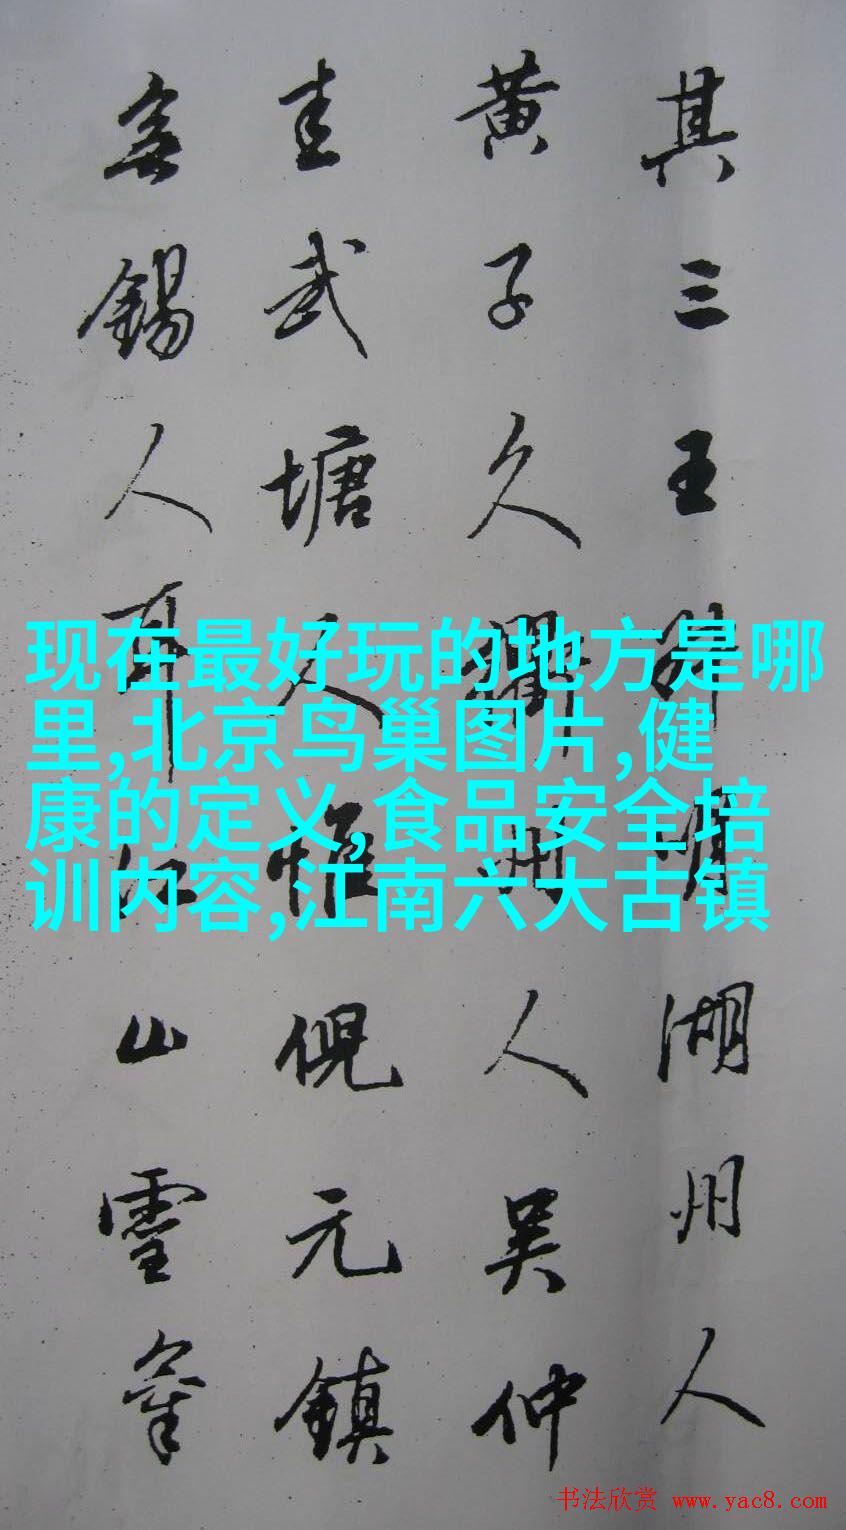 其三王叔明湖州人
黄子久衢州人吴仲
圭武塘人惟倪元鎮
無錫人耳江山靈氣
现在最好玩的地方是哪
里,北京鸟巢图片,健
康的定义,食品安全培
训内容,江南六大古镇
书法欣赏 www.yac8.com